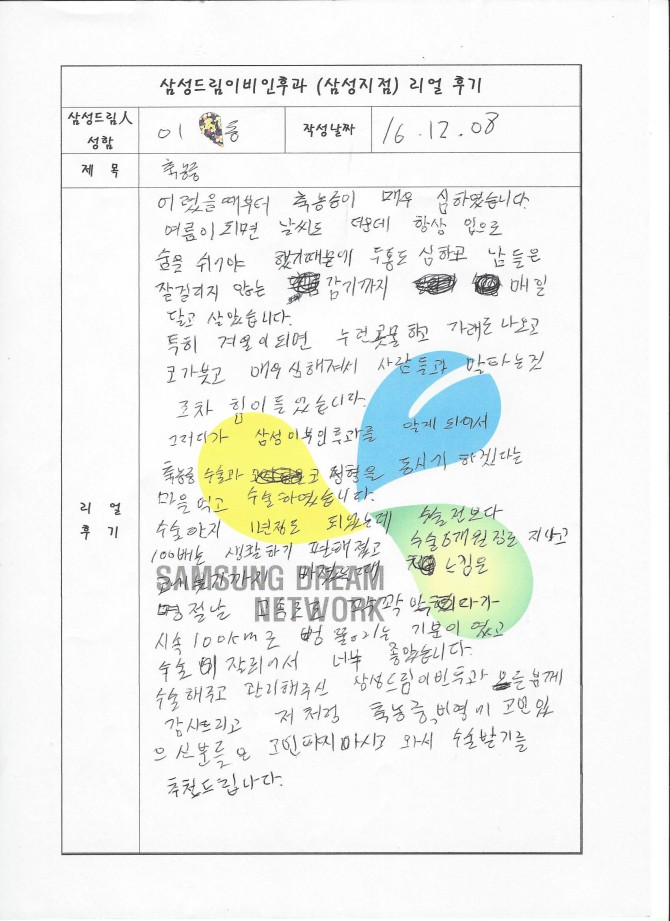 삼성드림이비인후과 (삼성지점) 리얼 후기
삼성드림人
성함
이 등
작성날짜
16.12.08
제 목
축농증
리 얼
후 기
어렸을때부터 축농증이 매우 심하였습니다.
여름이 되면 날씨도 더운데 항상 입으로
숨을 쉬기야 했기때문에 두통도 심하고 남들은
잘걸리지 않는 감기까지 매일
달고 살았습니다.
특히 겨울이 되면 누런콧물하고 가래도 나오고
코가붓고 매우 심해져서 사람들과 말하는것
조차 힘이 들었습니다.
그러다가 삼성이비인후과를 알게 되어서
축농증 수술과 코 정형을 동시기 하겠다는
마음 먹고 수술하였습니다.
수술한지 1년정도 되었는데 수술전보다
100배는 생활하기 편해졌고 수술6개월정도 지나고
느낌은
SAMSUNG DREAM
NETWORK
명절날 고속도로 꽉꽉
시속 100km로 뻥 뚫리는 기분이 였고
수술이 잘되어서 너무 좋았습니다.
수술해주고 관리해주신 삼성드림이비인후과 모든분께
감사드리고 저처럼 축농증, 비염에 고민있
으신분들은 고민하지마시고 와서 수술받기를
추천드립니다.